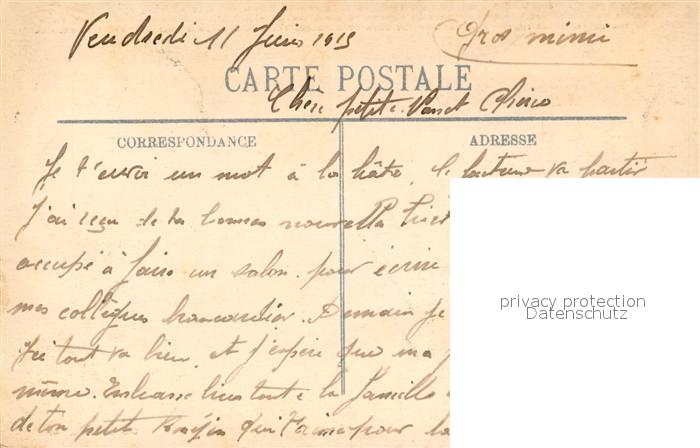 Vendredi 11 Juin 1915
Gros mimi
CARTE POSTALE
Chère petite
CORRESPONDANCE
ADRESSE
Je t'envoi un mot à la hâte, le facteur va partir
J'ai reçu de tes bonnes nouvelles
occupé à faire un salon pour écrire
mes collègues brancardier. Demain je
Ici tout va bien et j'espère que ma
même. Embrasse bien toute la famille
de ton petit qui t'aime pour la
privacy protection
Datenschutz